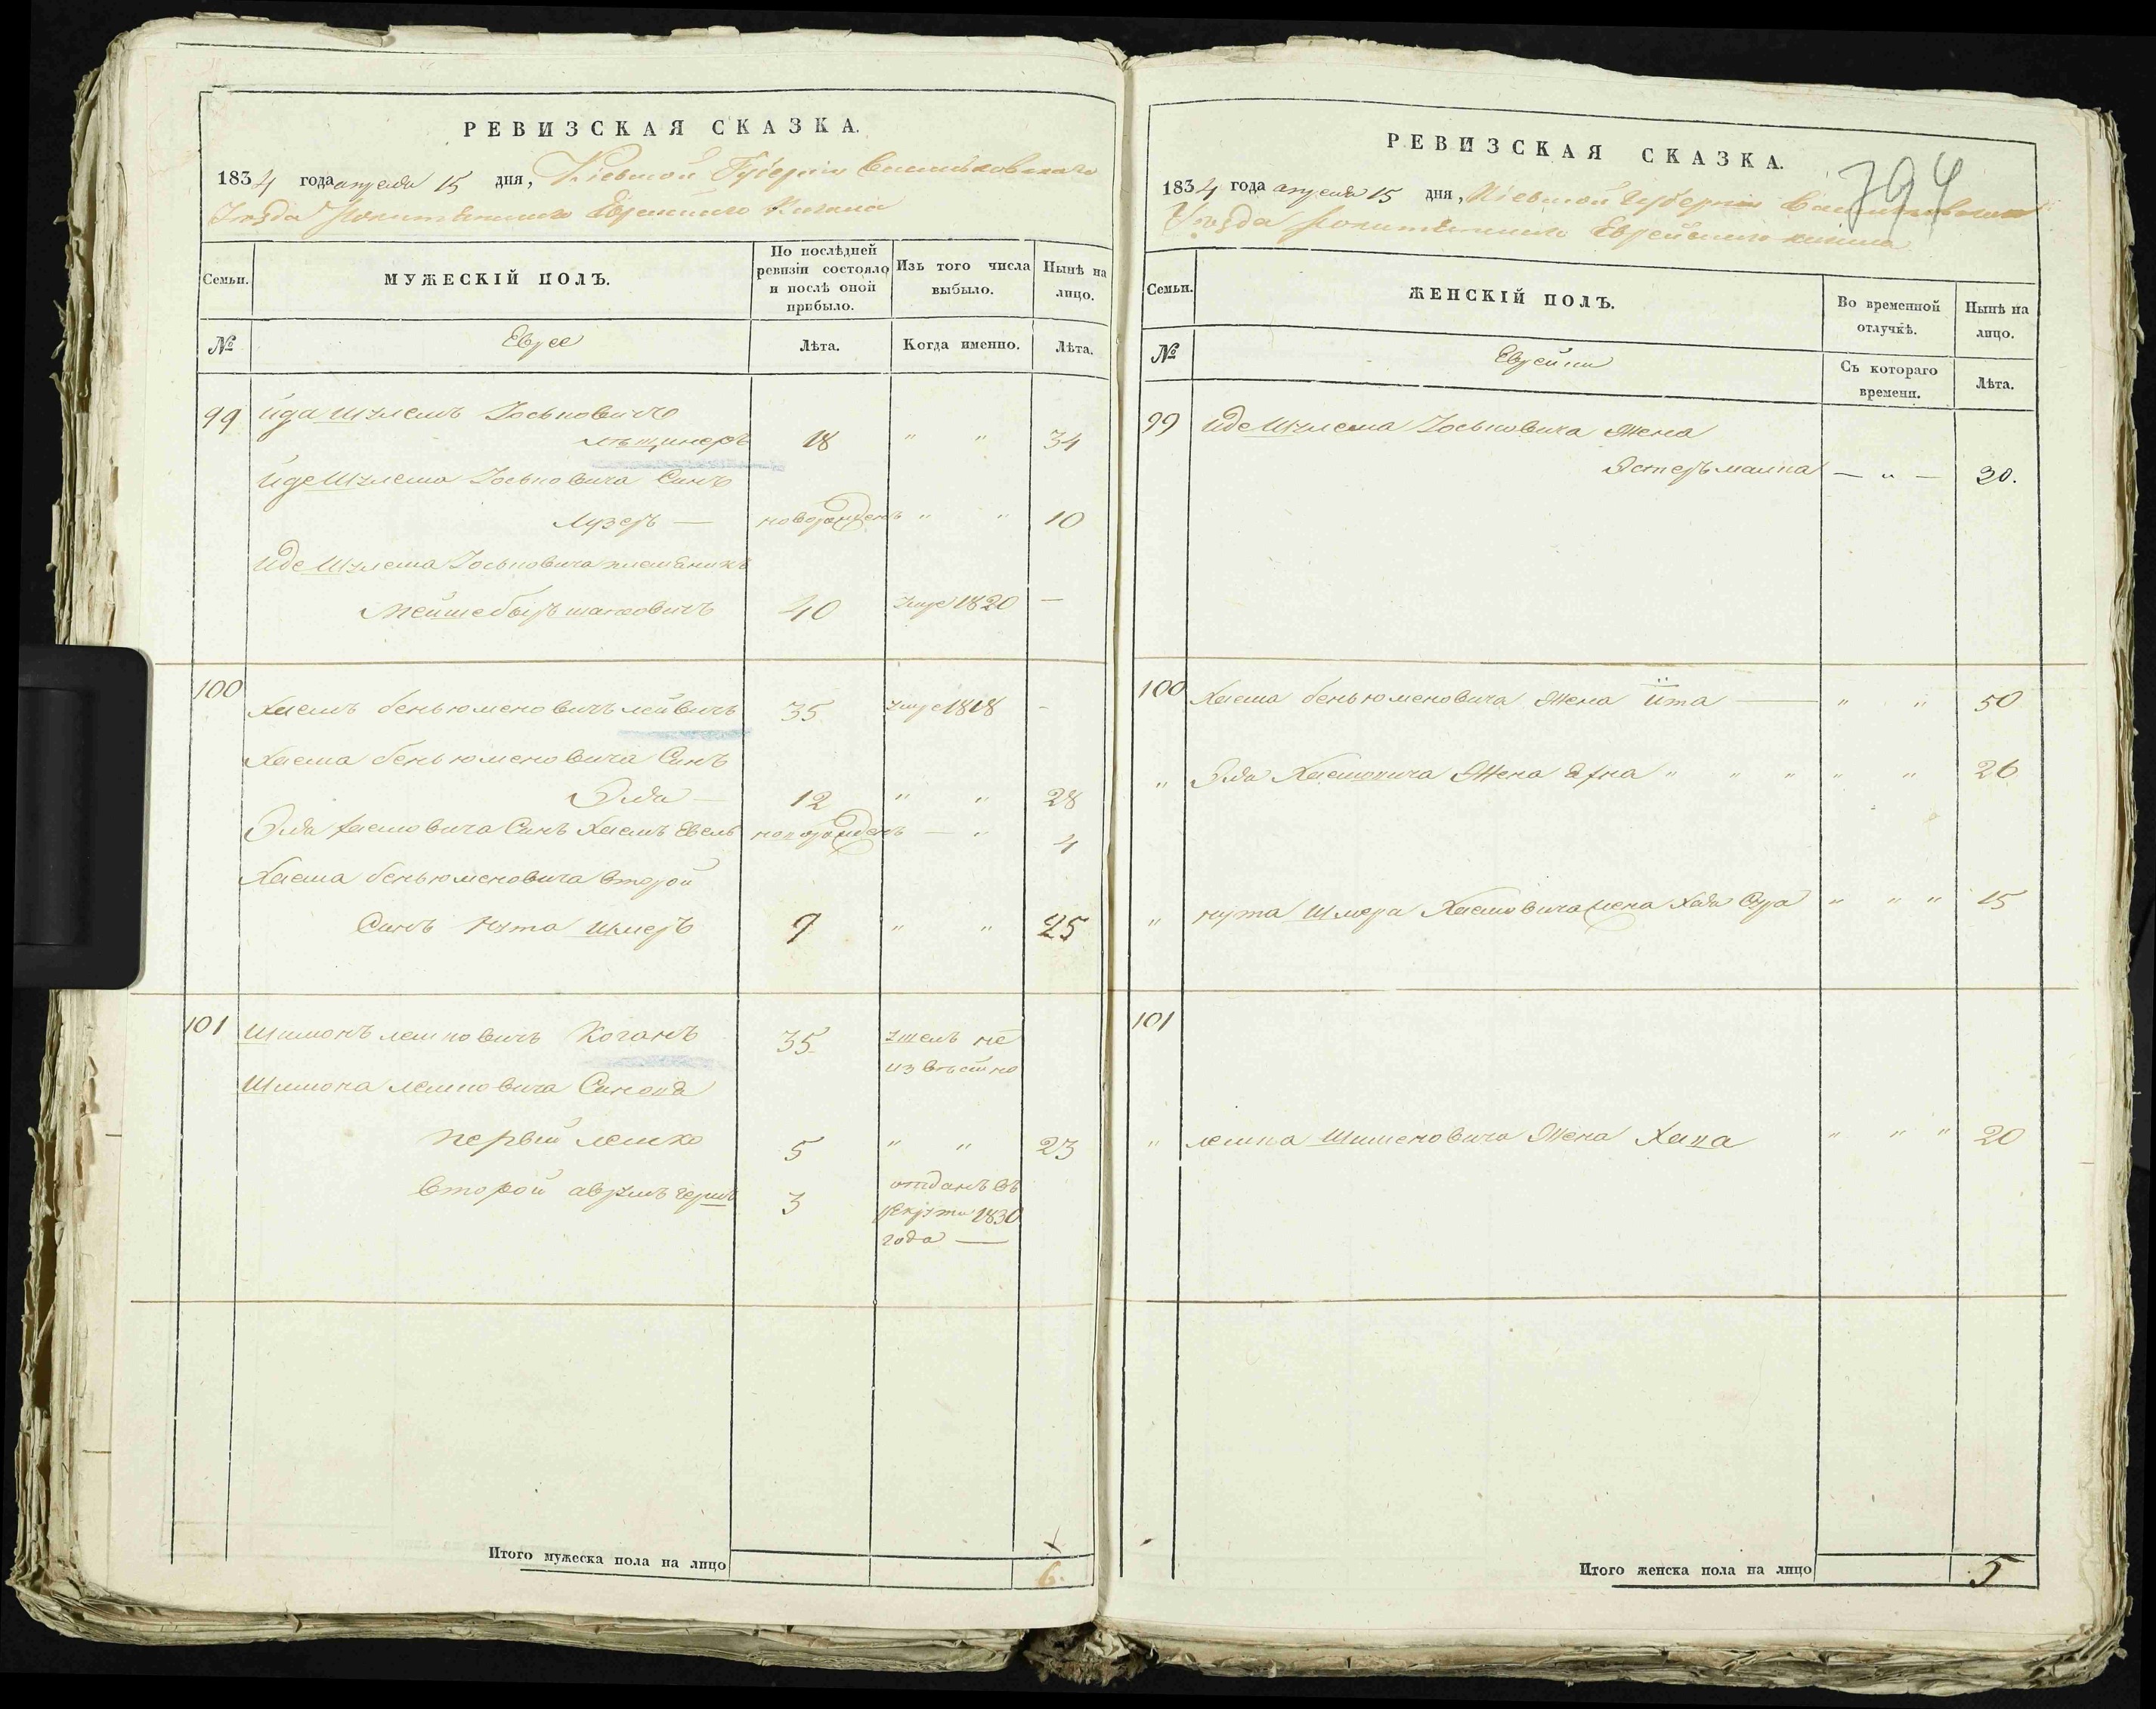 РЕВИЗСКАЯ СКАЗКА.
1834 года апреля 15 дня, Кіевской Губерніи Васильковскаго
Уезда Рокитянского Еврейского Кагала
Семьи.
МУЖЕСКІЙ ПОЛЪ.
По послѣдней ревизіи состояло и послѣ оной прибыло.
Изъ того числа выбыло.
Нынѣ на лицо.
№
Еврее
Лѣта.
Когда именно.
Лѣта.
99 Йда Шулемъ Иоськовичъ
18 " " 34
Йде Шулема Иоськовича Синъ
Лузеръ — новорожденъ " " 10
Иде Шулема Иоськовича племяникъ
40 Умре 1820 —
100 Хаемъ беньюменовичъ лейвичъ 35 Умре 1818 -
Хаема беньюменовича Синъ
Эля — 12 " " 28
Эля Хаемовича Синъ Хаемъ Евель новорожденъ — " 4
Хаема беньюменовича второй
Синъ Нута Шмеръ 9 " " 25
101 Шимонъ лейковичъ Коганъ 35 Ушелъ не
извѣстно
Шимона лейковича Синовя
первый лейко 5 " " 23
второй аврумъ герш 3 отданъ въ
рекруты 1830
года —
Итого мужеска пола на лицо 6.
РЕВИЗСКАЯ СКАЗКА.
794
1834 года апреля 15 дня, Кіевской Губерніи Васильковского
Уезда Рокитянского Еврейского кагала
Семьи.
ЖЕНСКІЙ ПОЛЪ.
Во временной отлучкѣ.
Нынѣ на лицо.
№
Еврейки
Съ котораго времени.
Лѣта.
99 Иде Шулема Иоськовича Жена
Эстеръ малка — " — 30.
100 Хаема беньюменовича Жена Йта — " " 50
" Эля Хаемовича Жена " " " " " 26
" нута Шмера Хаемовича жена Хая Сура " " " 15
101
" лейка Шименовича Жена Хана " " " 20
Итого женска пола на лицо 5